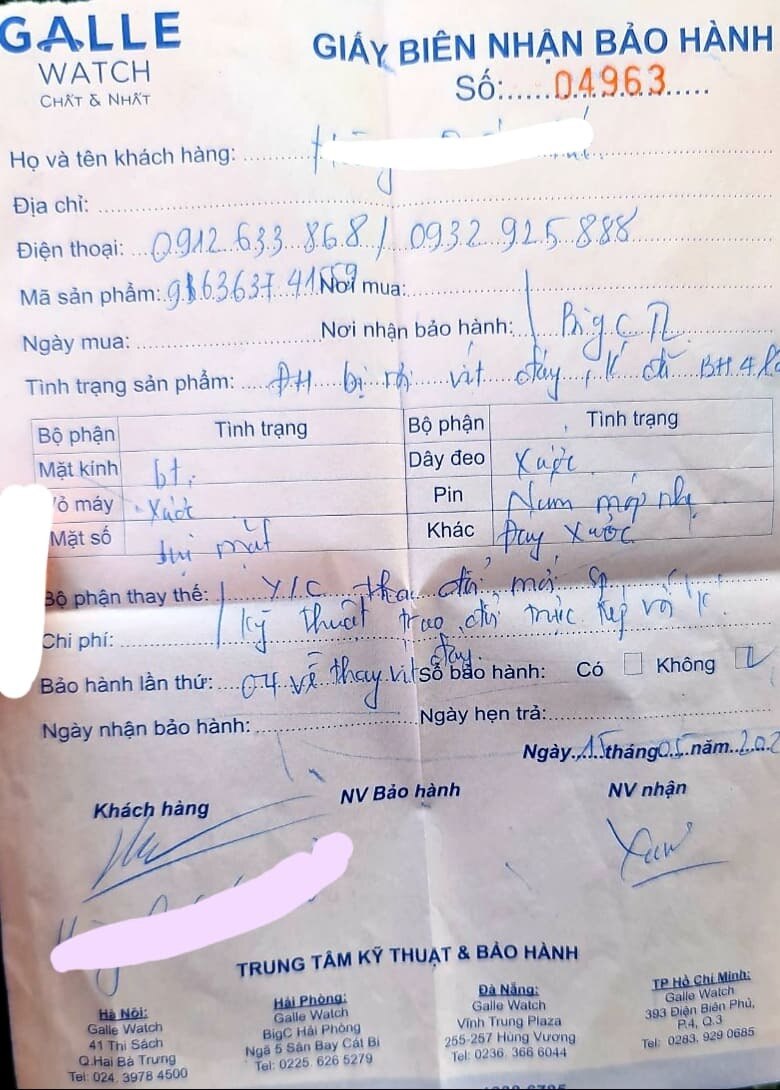 GALLE
WATCH
CHẤT & NHẤT
GIẤY BIÊN NHẬN BẢO HÀNH
Số:.....04963.....
Họ và tên khách hàng:
Địa chỉ:
Điện thoại: 0912 633 868 / 0932 925 888
Mã sản phẩm: Nơi mua:
Ngày mua: Nơi nhận bảo hành: Big C TL
Tình trạng sản phẩm: ĐH bị vít đáy, K đã BH 4
Bộ phận Tình trạng Bộ phận Tình trạng
Mặt kính bt. Dây đeo Xước
Vỏ máy Xước Pin Nắm nhẹ
Mặt số mắt Khác Đáy xước
Bộ phận thay thế: Y/C thay đổi, mới sp
Kỹ thuật trao đổi trực tiếp với K.
Chi phí:
Bảo hành lần thứ: 04 về thay vít đáy. Sổ bảo hành: Có Không
Ngày nhận bảo hành: Ngày hẹn trả:
Ngày 15 tháng 05 năm 202
Khách hàng NV Bảo hành NV nhận
TRUNG TÂM KỸ THUẬT & BẢO HÀNH
Hà Nội:
Galle Watch
41 Thi Sách
Q.Hai Bà Trưng
Tel: 024. 3978 4500
Hải Phòng:
Galle Watch
BigC Hải Phòng
Ngã 5 Sân Bay Cát Bi
Tel: 0225. 626 5279
Đà Nẵng:
Galle Watch
Vĩnh Trung Plaza
255-257 Hùng Vương
Tel: 0236. 366 6044
TP Hồ Chí Minh:
Galle Watch
393 Điện Biên Phủ,
P.4, Q.3
Tel: 0283. 929 0685